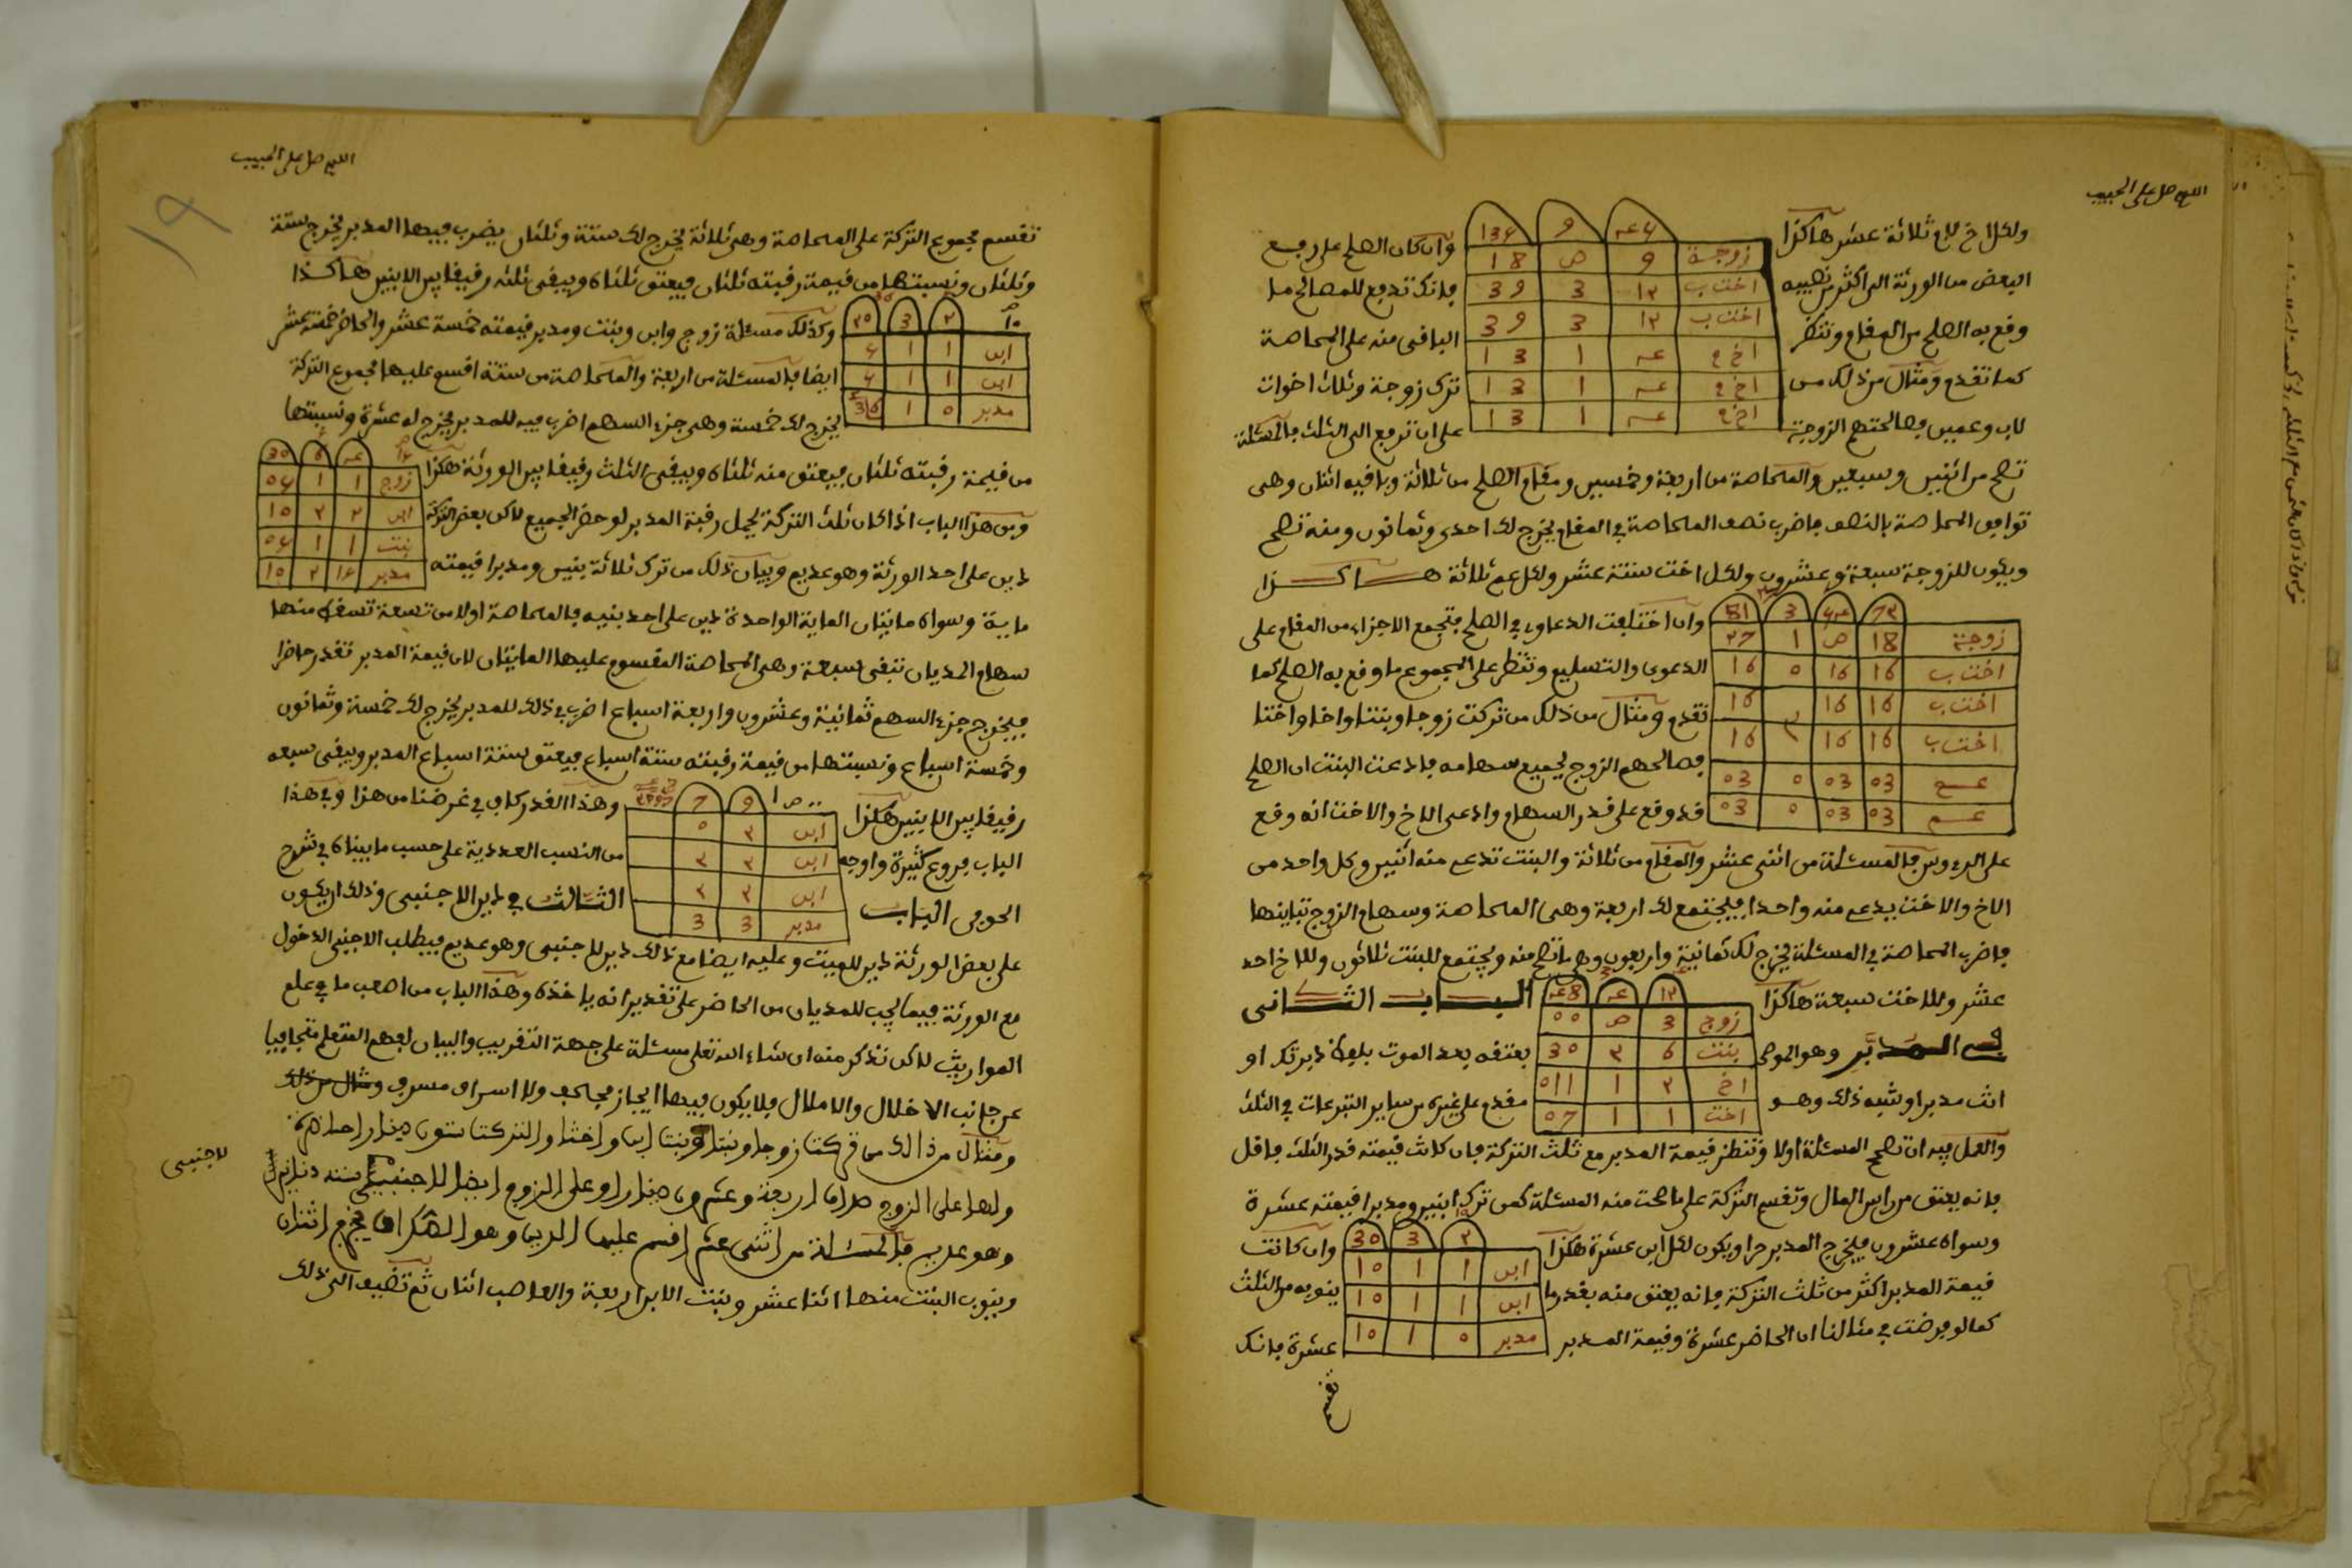 اللهم صل على الحبيب
ولكل اخ لام ثلاثة عشر هاكذا
وان كان الصلح على رفع
البعض من الورثة الى اكثر من نصيبه
فانك تدفع للمصالح ما
وقع به الصلح من المقام وتنظر
الباقى منه على المحاصة
كما تقدم ومثال من ذلك من
ترك زوجة وثلاث اخوات
لاب وعمين فصالحتهم الزوجة
على ان ترفع الى الثلث فالمسئلة
زوجة 9 ص 18
اخت ب ١٢ 3 39
اخت ب ١٢ 3 39
اخ م عـ 1 13
اخ م عـ 1 13
اخ م عـ 1 13
تصح من اثنين وسبعين والمحاصة من اربعة وخمسين ومقام الصلح من ثلاثة وباقيه اثنان وهى
توافق المحاصة بالنصف فاضرب نصف المحاصة في المقام يخرج لك احدى وثمانون ومنه تصح
ويكون للزوجة سبعة وعشرون ولكل اخت ستة عشر ولكل عم ثلاثة هاكذا
وان اختلفت الدعاوى في الصلح فتجمع الاجزاء من المقام على
الدعوى والتسليم وتنظر على المجموع ما وقع به الصلح كما
تقدم ومثال من ذلك من تركت زوجا وبنتا واخا واختا
فصالحهم الزوج لجميع سهامه فادعت البنت ان الصلح
قد وقع على قدر السهام وادعى الاخ والاخت انه وقع
٧٢ 3 81
زوجة 18 ص 1 ٢7
اخت ب 16 16 0 16
اخت ب 16 16 16
اخت ب 16 16 16
عم 03 03 0 03
عم 03 03 0 03
على الرءوس فالمسئلة من اثنى عشر والمقام من ثلاثة والبنت تدعى منه اثنين وكل واحد من
الاخ والاخت يدعى منه واحدا فيجتمع لك اربعة وهى المحاصة وسهام الزوج تباينها
فاضرب المحاصة في المسئلة يخرج لك ثمانية واربعون وهى ما تصح منه ويجتمع للبنت ثلاثون وللاخ احد
عشر وللاخت سبعة هاكذا
الباب الثانى
في المدبر وهو الموصى
بعتقه بعد الموت بلفظ دبرتك او
انت مدبر او شبه ذلك وهو
مقدم على غيره من ساير التبرعات في الثلث
زوج 3 ص 00
بنت 6 ٢ 30
اخ ٢ 1 011
اخت 1 1 07
والعمل فيه ان تصح المسئلة اولا وتنظر قيمة المدبر مع ثلث التركة فان كانت قيمته قدر الثلث فاقل
فانه يعتق من راس المال وتقسم التركة على ما صحت منه المسئلة كمن ترك ابنين ومدبرا قيمته عشرة
وسواه عشرون فيخرج المدبر حرا ويكون لكل ابن عشرة هكذا
وان كانت
قيمة المدبر اكثر من ثلث التركة فانه يعتق منه بقدر ما
ينوبه من الثلث
كما لو فرضت في مثالنا ان الحاضر عشرة وقيمة المدبر
عشرة فانك
٢ 3 30
ابن 1 1 10
ابن 1 1 10
مدبر 0 1 10
تقسم
اللهم صل على الحبيب
19
تقسم مجموع التركة على المحاصة وهى ثلاثة يخرج لك ستة وثلثان يضرب فيها المدبر يخرج ستة
وثلثان ونسبتها من قيمة رقبته ثلثان فيعتق ثلثاه ويبقى ثلثه رقيقا بين الابنين هاكذا
وكذلك مسئلة زوج وابن وبنت ومدبر قيمته خمسة عشر والحاضر خمسة عشر
ايضا فالمسئلة من اربعة والمحاصة من ستة اقسم عليها مجموع التركة
يخرج لك خمسة وهى جزء السهم اضرب فيه للمدبر يخرج له عشرة ونسبتها
10 ٢ 3 ٢0
ابن 1 1 6
ابن 1 1 6
مدبر 0 1
من قيمة رقبته ثلثان فيعتق منه ثلثاه ويبقى الثلث رقيقا بين الورثة هكذا
ومن هذا الباب اذا كان ثلث التركة يحمل رقبة المدبر لو حضر الجميع لاكن بعض التركة
دين على احد الورثة وهو عديم وبيان ذلك من ترك ثلاثة بنين ومدبرا قيمته
زوج 1 1
ابن ٢ ٢ 10
بنت 1 1
مدبر ٢ 10
ماية وسواه مايتان الماية الواحدة دين على احد بنيه فالمحاصة اولا من تسعة تسقط منها
سهام المديان تبقى سبعة وهى المحاصة المقسوم عليها المايتان لان قيمة المدبر تقدر حاضرا
فيخرج جزء السهم ثمانية وعشرون واربعة اسباع اضرب في ذلك للمدبر يخرج لك خمسة وثمانون
وخمسة اسباع ونسبتها من قيمة رقبته ستة اسباع فيعتق ستة اسباع المدبر ويبقى سبعه
رقيقا بين الابنين هكذا
وهذا القدر كاف في غرضنا من هذا وفي هذا
الباب فروع كثيرة واوجه
من النسب العددية على حسب ما بيناه في شرح
الحوفى الباب
الثالث في دين الاجنبى وذلك ان يكون
9 7
ابن ٢ 0
ابن ٢ ٢
ابن ٢ ٢
مدبر 3 3
على بعض الورثة دين للميت وعليه ايضا مع ذلك دين للاجنبى وهو عديم فيطلب الاجنبى الدخول
مع الورثة فيما يجب للمديان من الحاضر على تقدير انه ياخذه وهذا الباب من اصعب ما في علم
المواريث لاكن نذكر منه ان شاء الله تعلى مسئلة على جهة التقريب والبيان لفهم المتعلم متجافيا
عن جانب الاخلال والاملال فلا يكون فيها ايجاز مجحف ولا اسراف مسرف ومثال من ذلك
ومثال من ذالك من تركت زوجا وبنتا وبنت ابن واختا والتركت ستون دينارا حاضرة
ولها على الزوج صداق اربعة وعشرون دينارا وعلى الزوج ايضا للاجنبى ستة دنانير
للاجنبى
وهو عديم فالمسئلة من اثنى عشر اقسم عليها الدين وهو الصداق يخرج اثنان
وينوب البنت منها اثنا عشر وبنت الابن اربعة والعاصب اثنان ثم تضيف الى ذلك